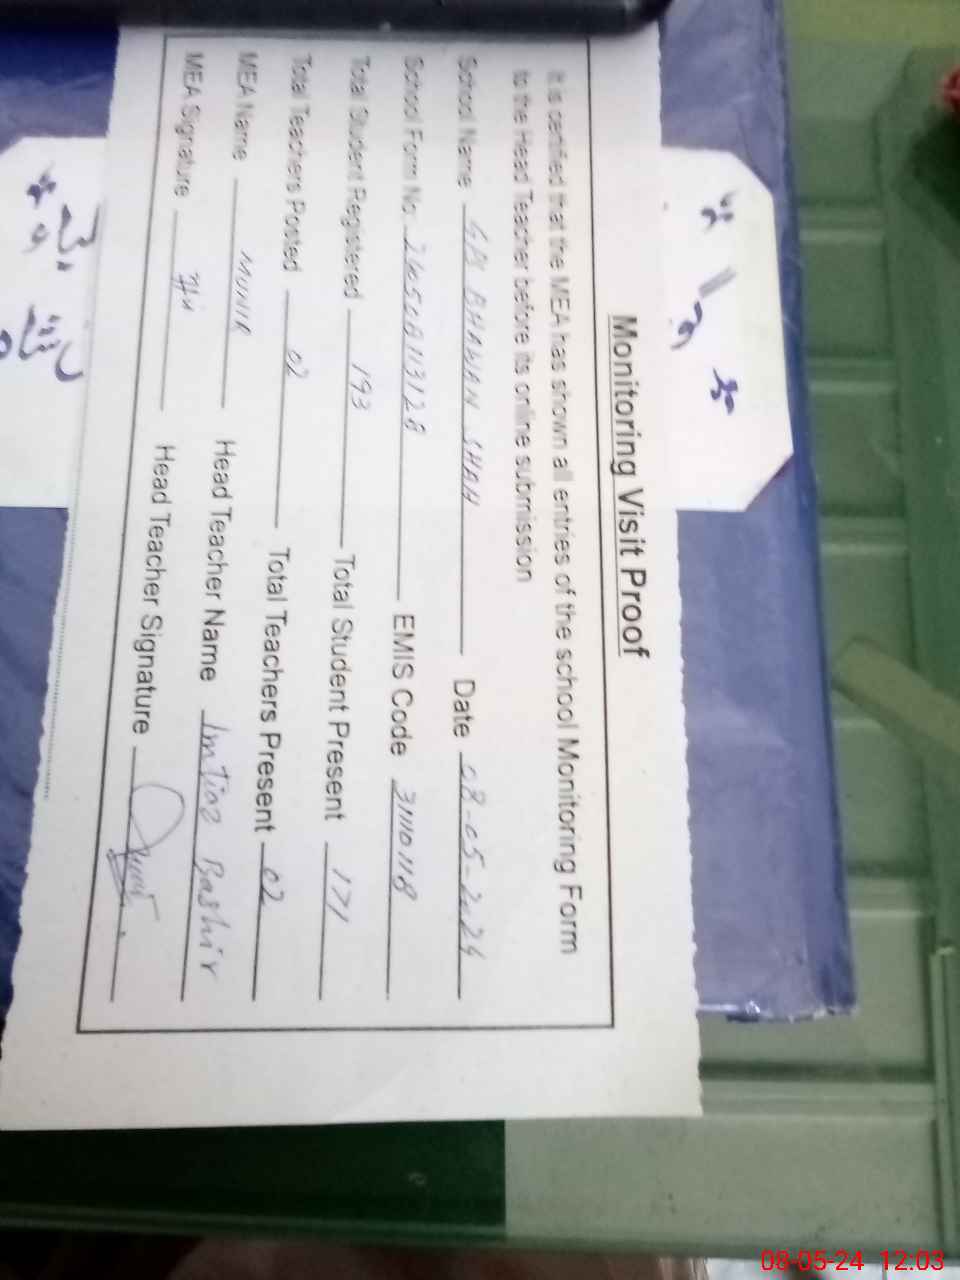 Monitoring Visit Proof
It is certified that the MEA has shown all entries of the school Monitoring Form
to the Head Teacher before its online submission
School Name BHAWAN SHAH Date 08-05-2024
School Form No. EMIS Code 31110118
Total Student Registered 193 Total Student Present 171
Total Teachers Posted 02 Total Teachers Present 02
MEA Name MUNIR Head Teacher Name Imtiaz Bashir
MEA Signature Head Teacher Signature
08-05-24 12:03